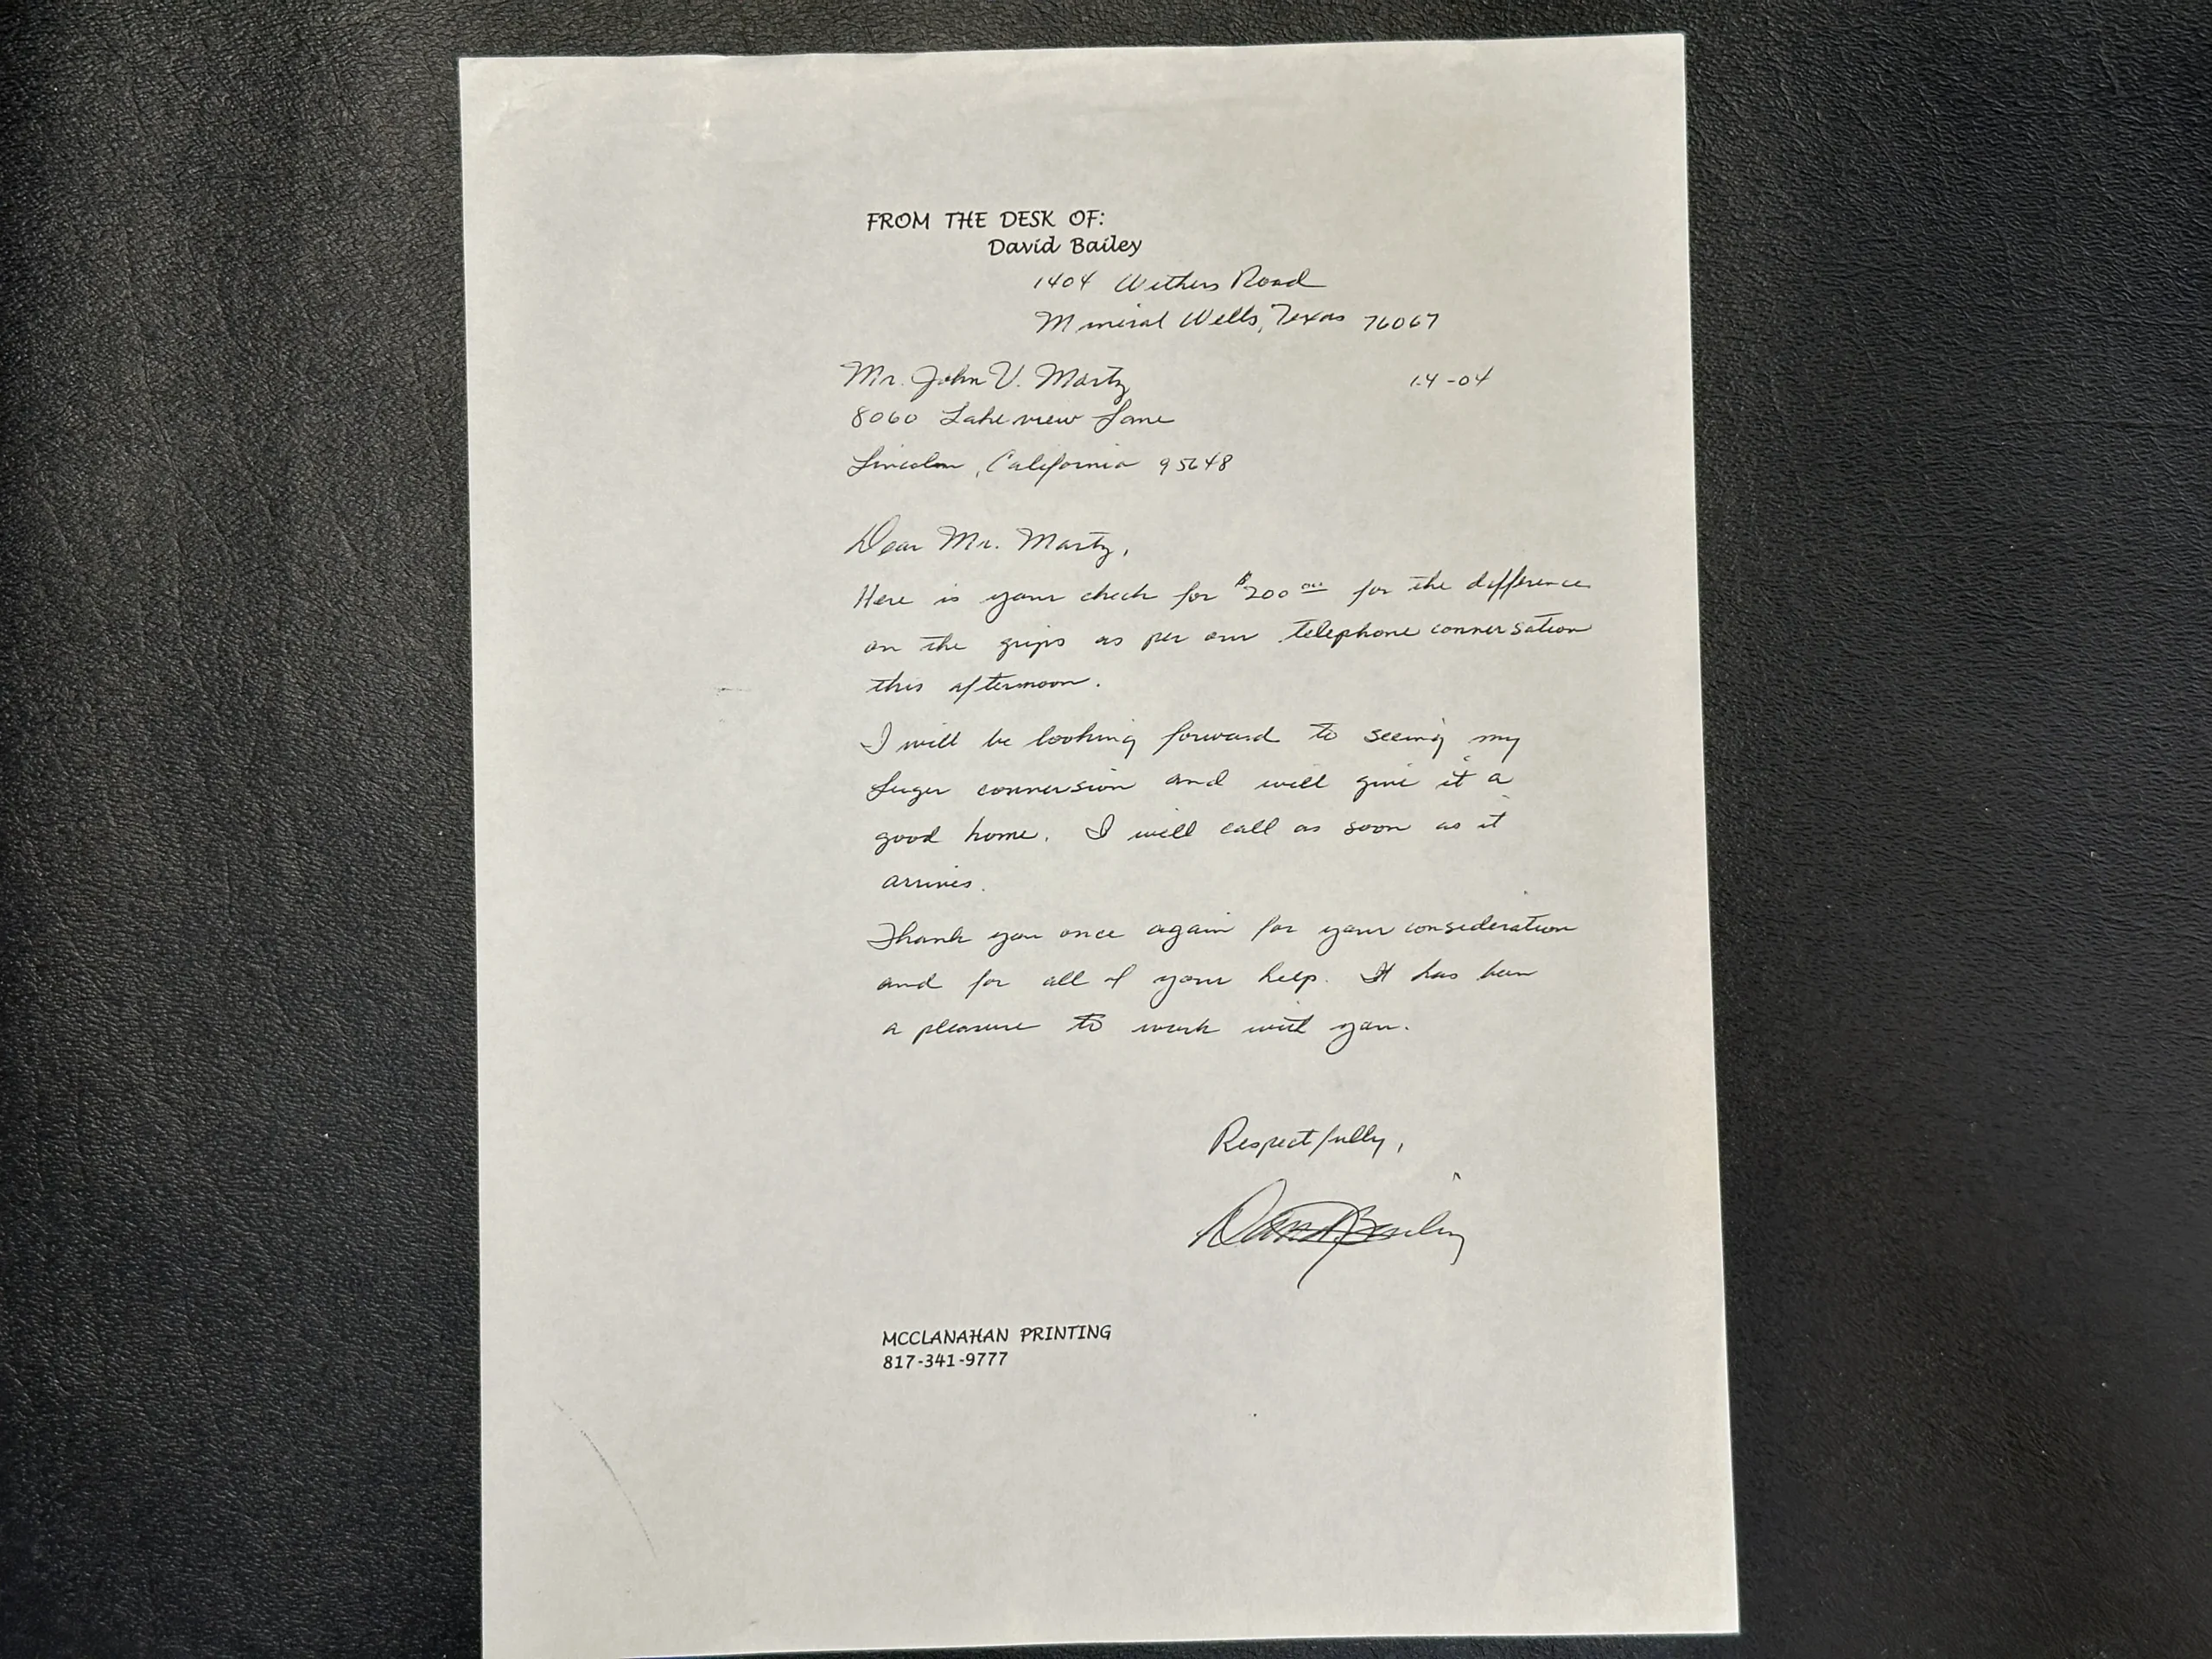 FROM THE DESK OF:
David Bailey
1404 Withers Road
Mineral Wells, Texas 76067
Mr. John V. Martz
1-4-04
8060 Lakeview Lane
Lincoln, California 95648
Dear Mr. Martz,
Here is your check for $200 00 for the difference
on the grips as per our telephone conversation
this afternoon.
I will be looking forward to seeing my
Luger conversion and will give it a
good home. I will call as soon as it
arrives.
Thank you once again for your consideration
and for all of your help. It has been
a pleasure to work with you.
Respectfully,
David Bailey
MCCLANAHAN PRINTING
817-341-9777